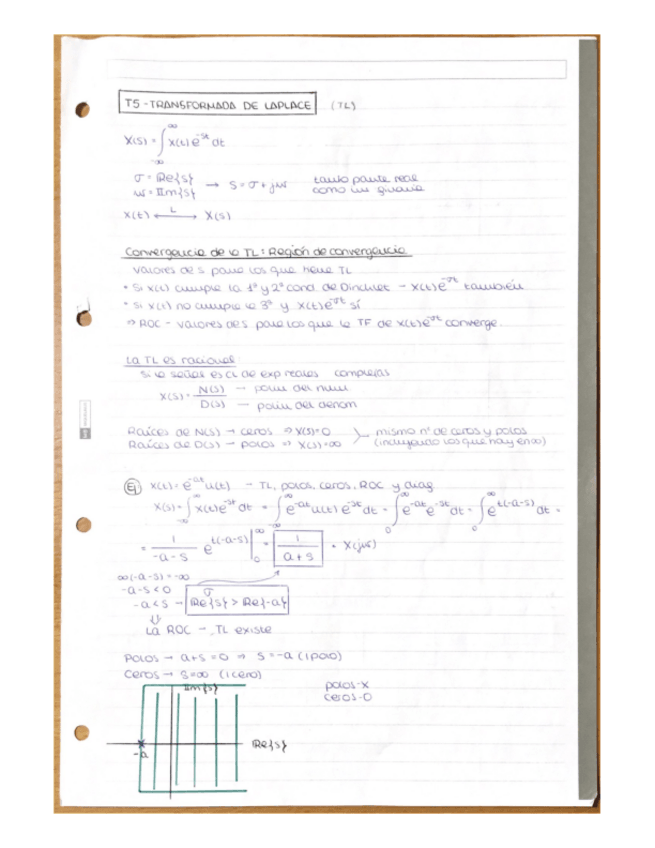 T5 - TRANSFORMADA DE LAPLACE (TL)
X(s) = ∫_{-∞}^{∞} x(t) e^{-st} dt
σ = Re{s}
ω = Im{s} → s = σ + jω
tanto parte real
como
x(t) ←L→ X(s)
Convergencia de la TL: Región de convergencia
Valores de s para los que tiene TL
• Si x(t) cumple la 1ª y 2ª cond. de Dirichlet - x(t)e^{-σt} también
• Si x(t) no cumple la 3ª y x(t)e^{-σt} sí
⇒ ROC - valores de s para los que la TF de x(t)e^{-σt} converge.
La TL es racional:
Si la señal es CL de exp reales complejas
X(s) = N(s) / D(s)
— polin del num
— polin del denom
Raíces de N(s) → ceros ⇒ X(s)=0
Raíces de D(s) → polos ⇒ X(s)=∞
mismo nº de ceros y polos
(incluyendo los que hay en ∞)
Ej x(t) = e^{-at} u(t) - TL, polos, ceros, ROC y diag
X(s) = ∫_{-∞}^{∞} x(t) e^{-st} dt = ∫_{-∞}^{∞} e^{-at} u(t) e^{-st} dt = ∫_{0}^{∞} e^{-at} e^{-st} dt = ∫_{0}^{∞} e^{t(-a-s)} dt =
= 1/(-a-s) e^{t(-a-s)} |_{0}^{∞} = 1/(a+s) = X(jω)
∞(-a-s) = -∞
-a-s < 0
-a < s → Re{s} > Re{-a}
σ
⇓
La ROC - TL existe
Polos → a+s = 0 ⇒ s = -a (1 polo)
Ceros → s = ∞ (1 cero)
polos - X
ceros - O
Im{s}
Re{s}
-a